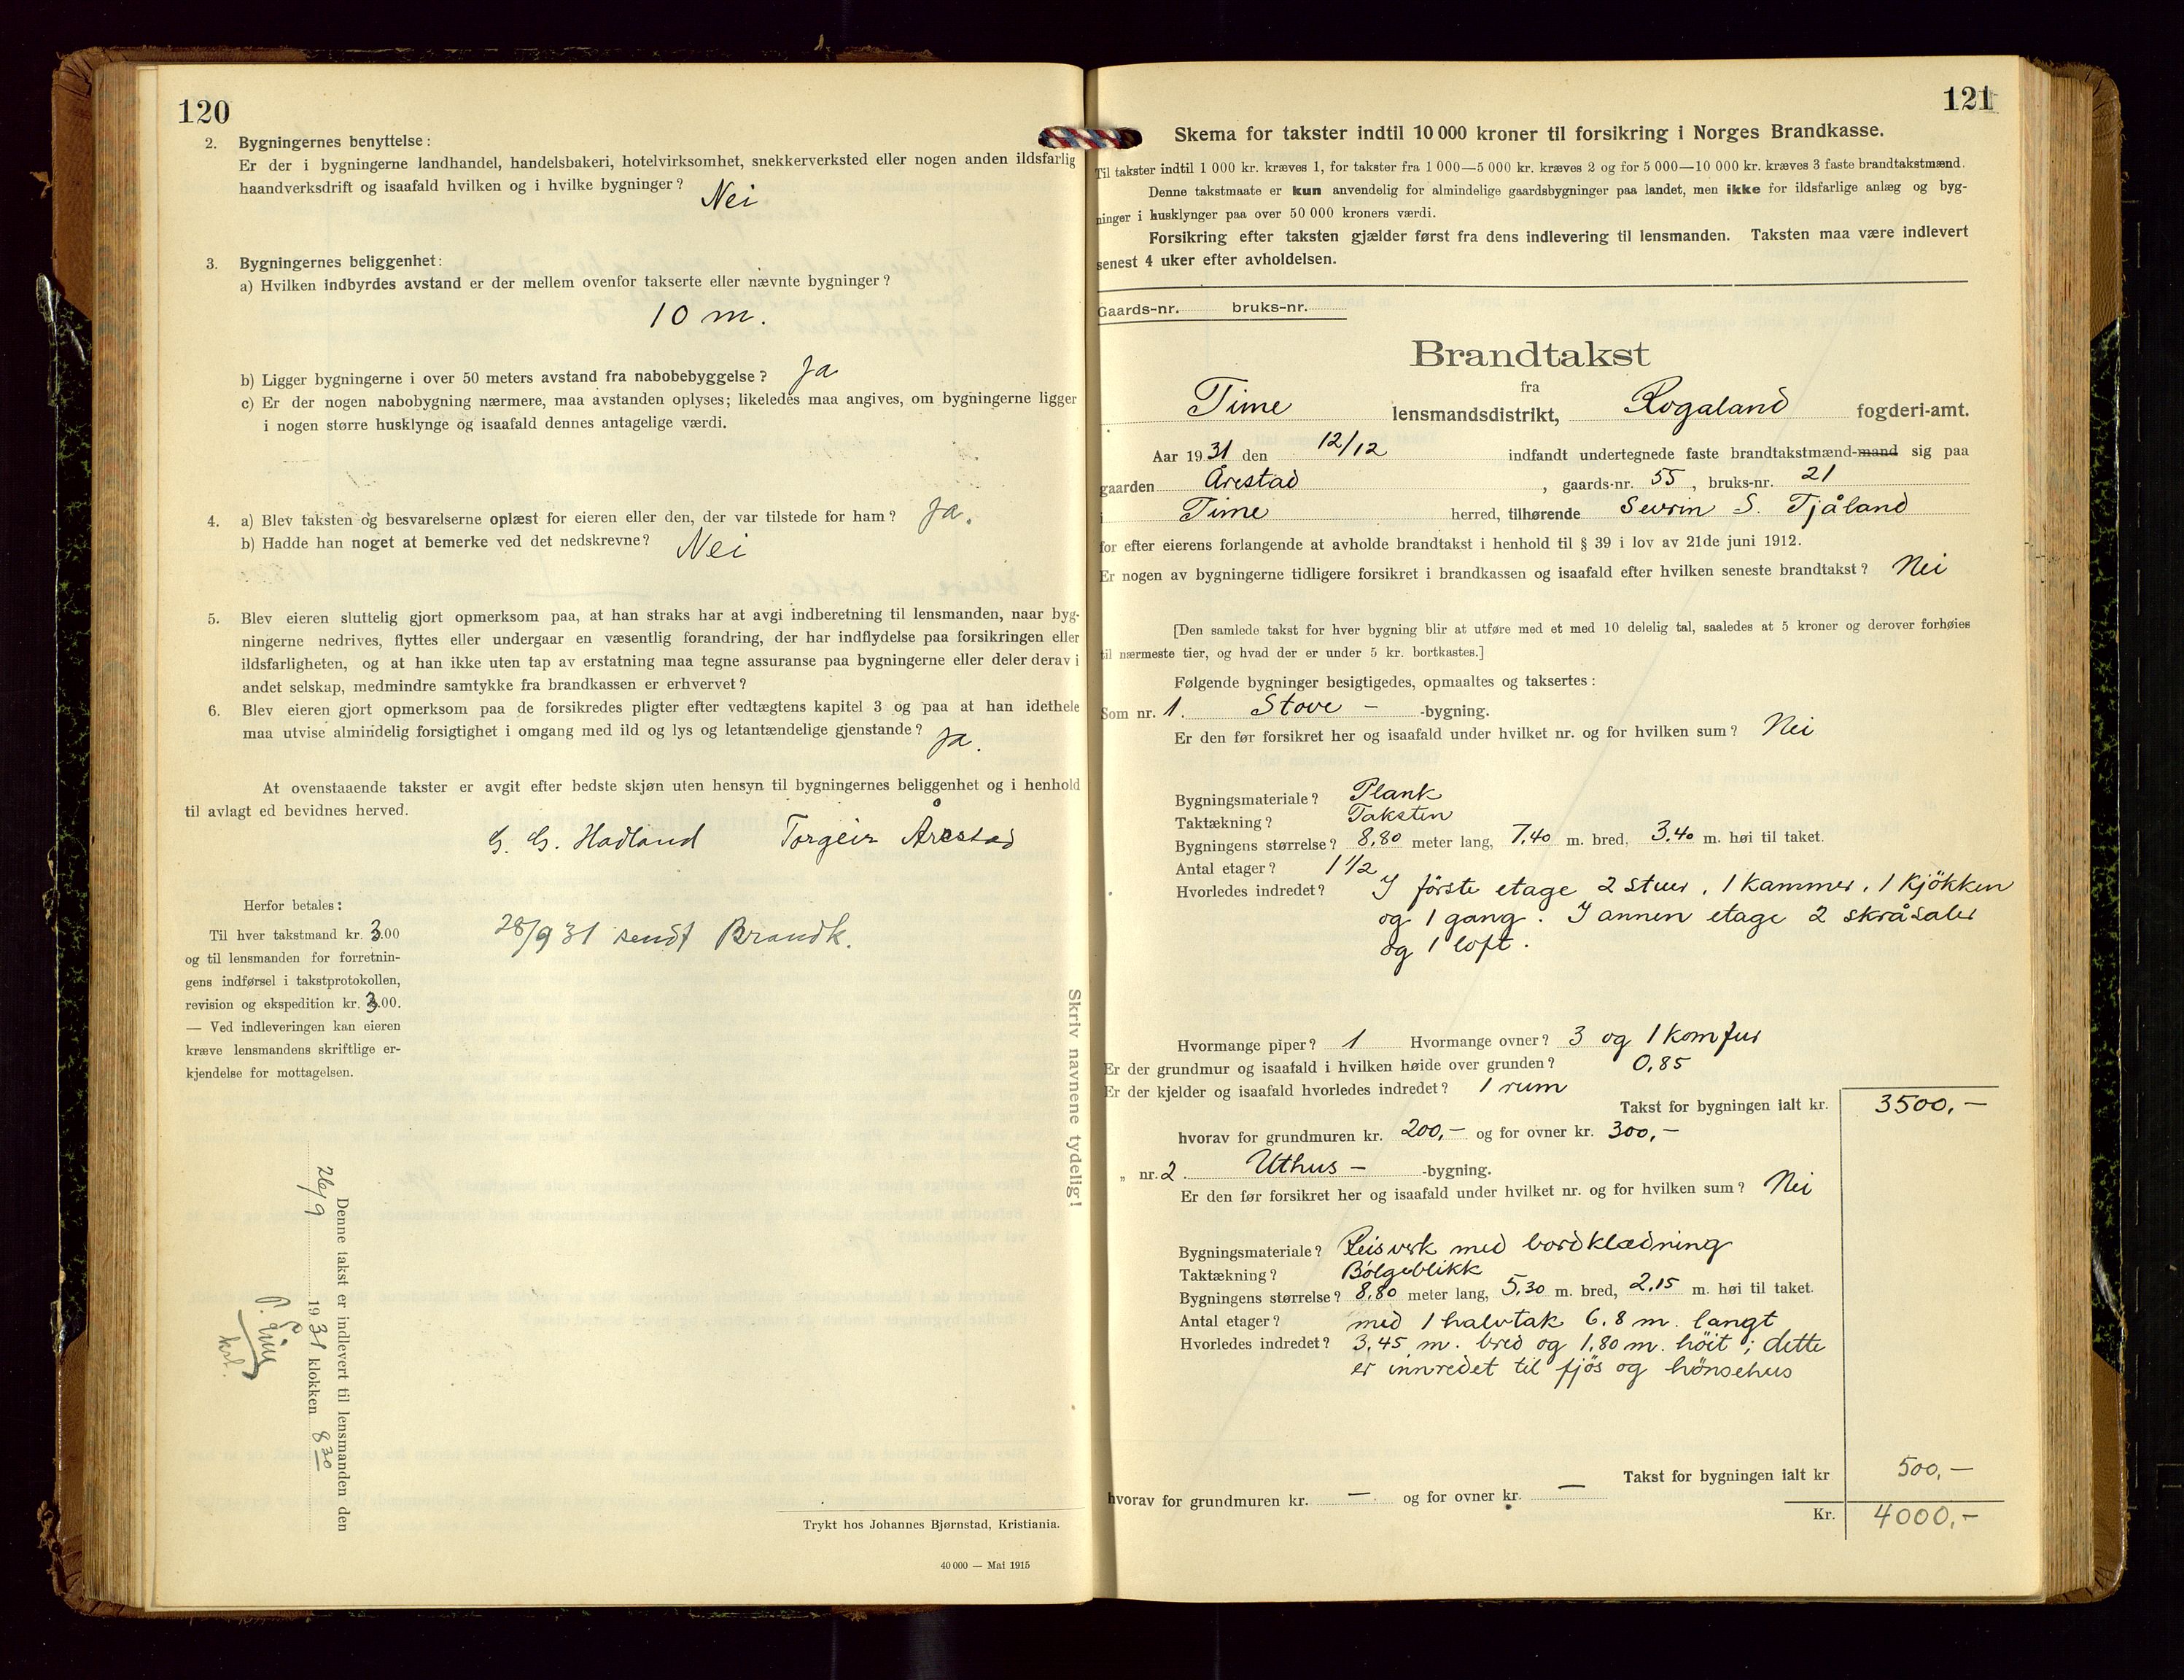 120
2. Bygningernes benyttelse:
Er der i bygningerne landhandel, handelsbakeri, hotelvirksomhet, snekkerverksted eller nogen anden ildsfarlig
haandverksdrift og isaafald hvilken og i hvilke bygninger? Nei
3. Bygningernes beliggenhet:
a) Hvilken indbyrdes avstand er der mellem ovenfor takserte eller nævnte bygninger?
10 m.
b) Ligger bygningerne i over 50 meters avstand fra nabobebyggelse? Ja
c) Er der nogen nabobygning nærmere, maa avstanden oplyses; likeledes maa angives, om bygningerne ligger
i nogen større husklynge og isaafald dennes antagelige værdi.
4. a) Blev taksten og besvarelserne oplæst for eieren eller den, der var tilstede for ham? Ja.
b) Hadde han noget at bemerke ved det nedskrevne? Nei
5. Blev eieren sluttelig gjort opmerksom paa, at han straks har at avgi indberetning til lensmanden, naar byg-
ningerne nedrives, flyttes eller undergaar en væsentlig forandring, der har indflydelse paa forsikringen eller
ildsfarligheten, og at han ikke uten tap av erstatning maa tegne assuranse paa bygningerne eller deler derav i
andet selskap, medmindre samtykke fra brandkassen er erhvervet?
6. Blev eieren gjort opmerksom paa de forsikredes pligter efter vedtægtens kapitel 3 og paa at han idethele
maa utvise almindelig forsigtighet i omgang med ild og lys og letantændelige gjenstande? Ja.
At ovenstaaende takster er avgit efter bedste skjøn uten hensyn til bygningernes beliggenhet og i henhold
til avlagt ed bevidnes herved.
G. G. Hadland Torgeir Årestad
Herfor betales:
Til hver takstmand kr. 3.00
og til lensmanden for forretnin-
gens indførsel i takstprotokollen,
revision og ekspedition kr. 3.00.
— Ved indleveringen kan eieren
kræve lensmandens skriftlige er-
kjendelse for mottagelsen.
28/9 31 sendt Brandk.
Denne takst er indlevert til lensmanden den
26/9 1931 klokken 8 30
Skriv navnene tydelig!
Trykt hos Johannes Bjørnstad, Kristiania.
40 000 — Mai 1915
121
Skema for takster indtil 10 000 kroner til forsikring i Norges Brandkasse.
Til takster indtil 1 000 kr. kræves 1, for takster fra 1 000—5 000 kr. kræves 2 og for 5 000—10 000 kr. kræves 3 faste brandtakstmænd.
Denne takstmaate er kun anvendelig for almindelige gaardsbygninger paa landet, men ikke for ildsfarlige anlæg og byg-
ninger i husklynger paa over 50 000 kroners værdi.
Forsikring efter taksten gjælder først fra dens indlevering til lensmanden. Taksten maa være indlevert
senest 4 uker efter avholdelsen.
Gaards-nr. bruks-nr.
Brandtakst
fra
Time lensmandsdistrikt, Rogaland fogderi-amt.
Aar 1931 den 12/12 indfandt undertegnede faste brandtakstmænd-mand sig paa
gaarden Årestad, gaards-nr. 55, bruks-nr. 21
i Time herred, tilhørende Sevrin S. Tjåland
for efter eierens forlangende at avholde brandtakst i henhold til § 39 i lov av 21de juni 1912.
Er nogen av bygningerne tidligere forsikret i brandkassen og isaafald efter hvilken seneste brandtakst? Nei
[Den samlede takst for hver bygning blir at utføre med et med 10 delelig tal, saaledes at 5 kroner og derover forhøies
til nærmeste tier, og hvad der er under 5 kr. bortkastes.]
Følgende bygninger besigtigedes, opmaaltes og taksertes:
Som nr. 1. Stove - -bygning.
Er den før forsikret her og isaafald under hvilket nr. og for hvilken sum? Nei
Bygningsmateriale? Plank
Taktækning? Taksten
Bygningens størrelse? 8,80 meter lang, 7,40 m. bred, 3,40 m. høi til taket.
Antal etager? 1 1/2
Hvorledes indredet? I förste etage 2 stuer, 1 kammer, 1 kjökken
og 1 gang. I annen etage 2 skråsaler
og 1 loft.
Hvormange piper? 1 Hvormange ovner? 3 og 1 komfur
Er der grundmur og isaafald i hvilken høide over grunden? 0,85
Er der kjelder og isaafald hvorledes indredet? 1 rum
Takst for bygningen ialt kr. 3500,-
hvorav for grundmuren kr. 200,- og for ovner kr. 300,-
„ nr. 2. Uthus - -bygning.
Er den før forsikret her og isaafald under hvilket nr. og for hvilken sum? Nei
Bygningsmateriale? Reisverk med bordklædning
Taktækning? Bölgeblikk
Bygningens størrelse? 8,80 meter lang, 5,30 m. bred, 2,15 m. høi til taket.
Antal etager? med 1 halvtak 6.8 m. langt
Hvorledes indredet? 3,45 m. bred og 1,80 m. höit; dette
er innredet til fjös og hönsehus
Takst for bygningen ialt kr 500,-
hvorav for grundmuren kr. — og for ovner kr. —
Kr. 4000,-